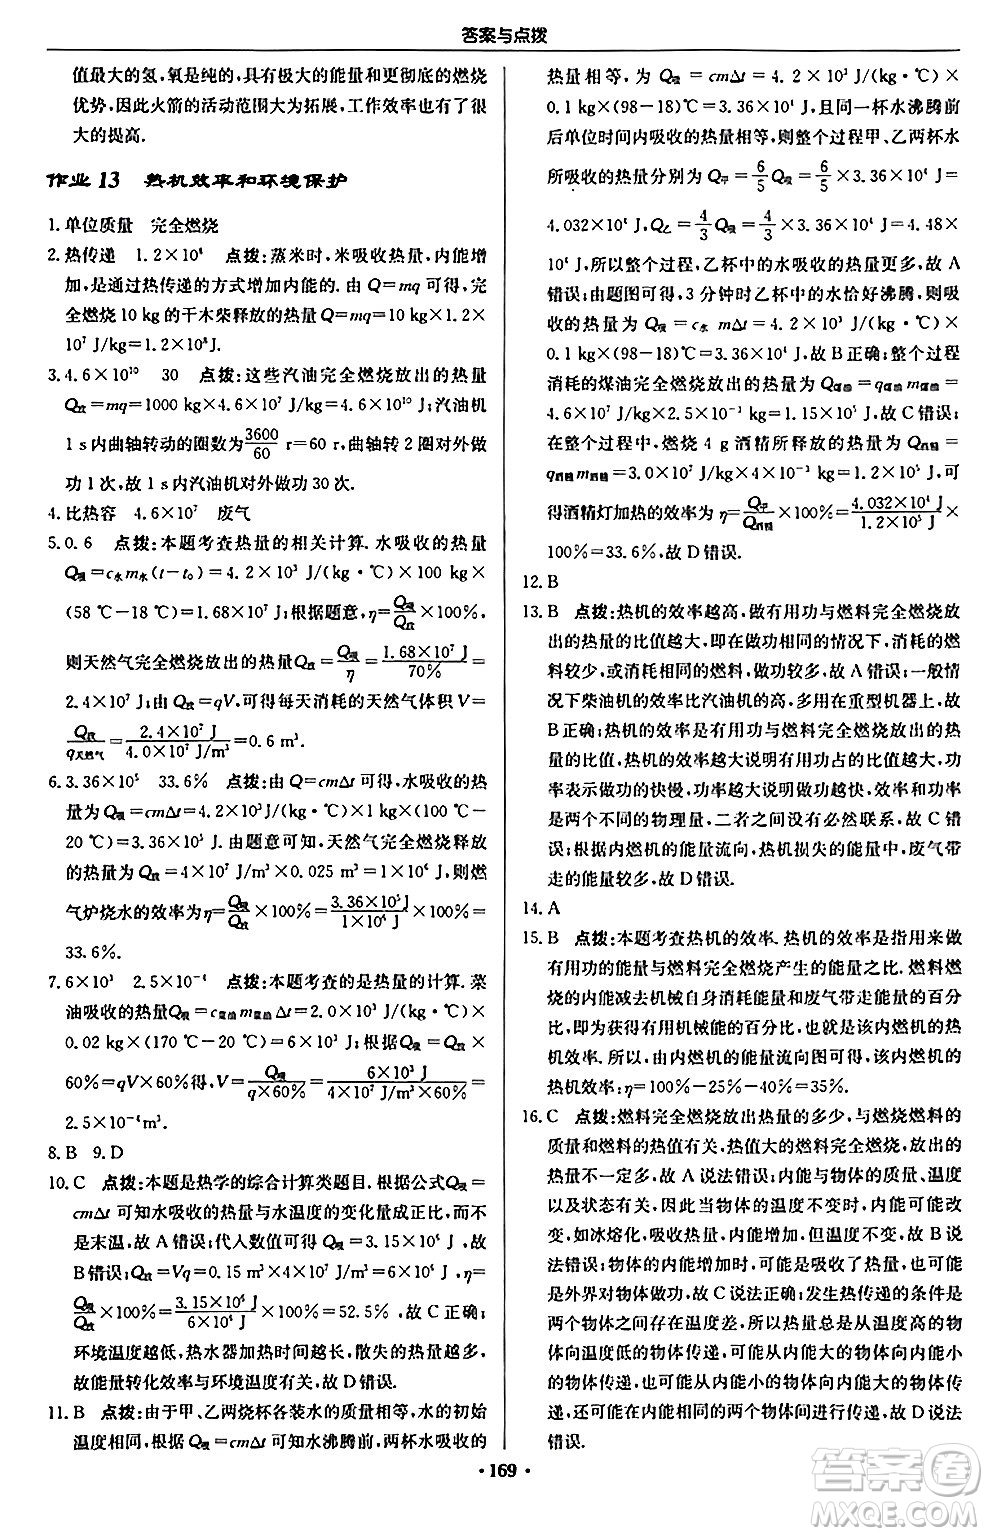 答案与点拨
值最大的氢,氧是纯的,具有极大的能量和更彻底的燃烧
优势,因此火箭的活动范围大为拓展,工作效率也有了很
大的提高.
作业 13 热机效率和环境保护
1.单位质量 完全燃烧
2.热传递 1.2×10⁸ 点拨:蒸米时,米吸收热量,内能增
加,是通过热传递的方式增加内能的.由 Q=mq 可得,完
全燃烧 10 kg 的干木柴释放的热量 Q=mq=10 kg×1.2×
10⁷ J/kg=1.2×10⁸J.
3.4.6×10¹⁰ 30 点拨:这些汽油完全燃烧放出的热量
Q放=mq=1000 kg×4.6×10⁷ J/kg=4.6×10¹⁰ J;汽油机
1 s 内曲轴转动的圈数为3600/60 r=60 r,曲轴转 2 圈对外做
功 1 次,故 1 s 内汽油机对外做功 30 次.
4.比热容 4.6×10⁷ 废气
5.0.6 点拨:本题考查热量的相关计算.水吸收的热量
Q吸=c水m水(t-t₀)=4.2×10³ J/(kg·℃)×100 kg×
(58 ℃-18 ℃)=1.68×10⁷ J;根据题意,η=Q吸/Q放×100%,
则天然气完全燃烧放出的热量Q放=Q吸/η=1.68×10⁷ J/70%=
2.4×10⁷ J;由 Q放=qV,可得每天消耗的天然气体积 V=
Q放/q天然气=2.4×10⁷ J/4.0×10⁷ J/m³=0.6 m³.
6.3.36×10⁵ 33.6% 点拨:由 Q=cmΔt 可得,水吸收的热
量为 Q吸=cmΔt=4.2×10³J/(kg·℃)×1 kg×(100 ℃-
20 ℃)=3.36×10⁵ J;由题意可知,天然气完全燃烧释放
的热量为 Q放=qV=4×10⁷ J/m³×0.025 m³=1×10⁶ J,燃
气炉烧水的效率为η=Q吸/Q放×100%=3.36×10⁵J/1×10⁶ J×100%=
33.6%.
7.6×10³ 2.5×10⁻⁴ 点拨:本题考查的是热量的计算.菜
油吸收的热量Q吸=c菜油m菜油Δt=2.0×10³J/(kg·℃)×
0.02 kg×(170 ℃-20 ℃)=6×10³ J;根据Q吸=Q放×
60%=qV×60%得,V=Q吸/q×60%=6×10³ J/4×10⁷ J/m³×60%=
2.5×10⁻⁴m³.
8.B 9.D
10.C 点拨:本题是热学的综合计算类题目.根据公式Q吸=
cmΔt 可知水吸收的热量与水温度的变化量成正比,而不
是末温,故 A 错误;代入数值可得 Q吸=3.15×10⁶ J,故
B 错误;Q放=Vq=0.15 m³×4×10⁷ J/m³=6×10⁶ J,η=
Q吸/Q放×100%=3.15×10⁶ J/6×10⁶ J×100%=52.5%,故 C 正确;
环境温度越低,热水器加热时间越长,散失的热量越多,
故能量转化效率与环境温度有关,故 D 错误.
11.B 点拨:由于甲、乙两烧杯各装水的质量相等,水的初始
温度相同,根据 Q吸=cmΔt 可知水沸腾前,两杯水吸收的
热量相等,为 Q吸=cmΔt=4.2×10³J/(kg·℃)×
0.1 kg×(98-18)℃=3.36×10⁴ J,且同一杯水沸腾前
后单位时间内吸收的热量相等,则整个过程甲、乙两杯水
所吸收的热量分别为 Q甲=6/5 Q吸=6/5×3.36×10⁴ J=
4.032×10⁴ J,Q乙=4/3 Q吸=4/3×3.36×10⁴ J=4.48×
10⁴ J,所以整个过程,乙杯中的水吸收热量更多,故 A
错误;由题图可得,3 分钟时乙杯中的水恰好沸腾,则吸
收的热量为 Q吸=c水mΔt=4.2×10³J/(kg·℃)×
0.1 kg×(98-18)℃=3.36×10⁴ J,故 B 正确;整个过程
消耗的煤油完全燃烧放出的热量为 Q煤油=q煤油m煤油=
4.6×10⁷ J/kg×2.5×10⁻³ kg=1.15×10⁵ J,故 C 错误;
在整个过程中,燃烧 4 g 酒精所释放的热量为 Q酒精=
q酒精m酒精=3.0×10⁷ J/kg×4×10⁻³ kg=1.2×10⁵ J,可
得酒精灯加热的效率为η=Q甲/Q酒精×100%=4.032×10⁴ J/1.2×10⁵ J×
100%=33.6%,故 D 错误.
12.B
13.B 点拨:热机的效率越高,做有用功与燃料完全燃烧放
出的热量的比值越大,即在做功相同的情况下,消耗的燃
料较少,或消耗相同的燃料,做功较多,故 A 错误;一般情
况下柴油机的效率比汽油机的高,多用在重型机器上,故
B 正确;热机的效率是有用功与燃料完全燃烧放出的热
量的比值,热机的效率越大说明有用功占的比值越大,功
率表示做功的快慢,功率越大说明做功越快,效率和功率
是两个不同的物理量,二者之间没有必然联系,故 C 错
误;根据内燃机的能量流向,热机损失的能量中,废气带
走的能量较多,故 D 错误.
14.A
15.B 点拨:本题考查热机的效率.热机的效率是指用来做
有用功的能量与燃料完全燃烧产生的能量之比.燃料燃
烧的内能减去机械自身消耗能量和废气带走能量的百分
比,即为获得有用机械能的百分比,也就是该内燃机的热
机效率.所以,由内燃机的能量流向图可得,该内燃机的
热机效率:η=100%-25%-40%=35%.
16.C 点拨:燃料完全燃烧放出热量的多少,与燃烧燃料的
质量和燃料的热值有关,热值大的燃料完全燃烧,放出的
热量不一定多,故 A 说法错误;内能与物体的质量、温度
以及状态有关,因此当物体的温度不变时,内能可能改
变,如冰熔化,吸收热量,内能增加,但温度不变,故 B 说
法错误;物体的内能增加时,可能是吸收了热量,也可能
是外界对物体做功,故 C 说法正确;发生热传递的条件是
两个物体之间存在温度差,所以热量可以从温度高的物
体向温度低的物体传递,可从内能大的物体向内能小的
物体传递,也可能从内能小的物体向内能大的物体传递,
还可能在内能相同的两个物体间进行传递,故 D 说法
错误.
·169·
答案圈
MXQE.COM